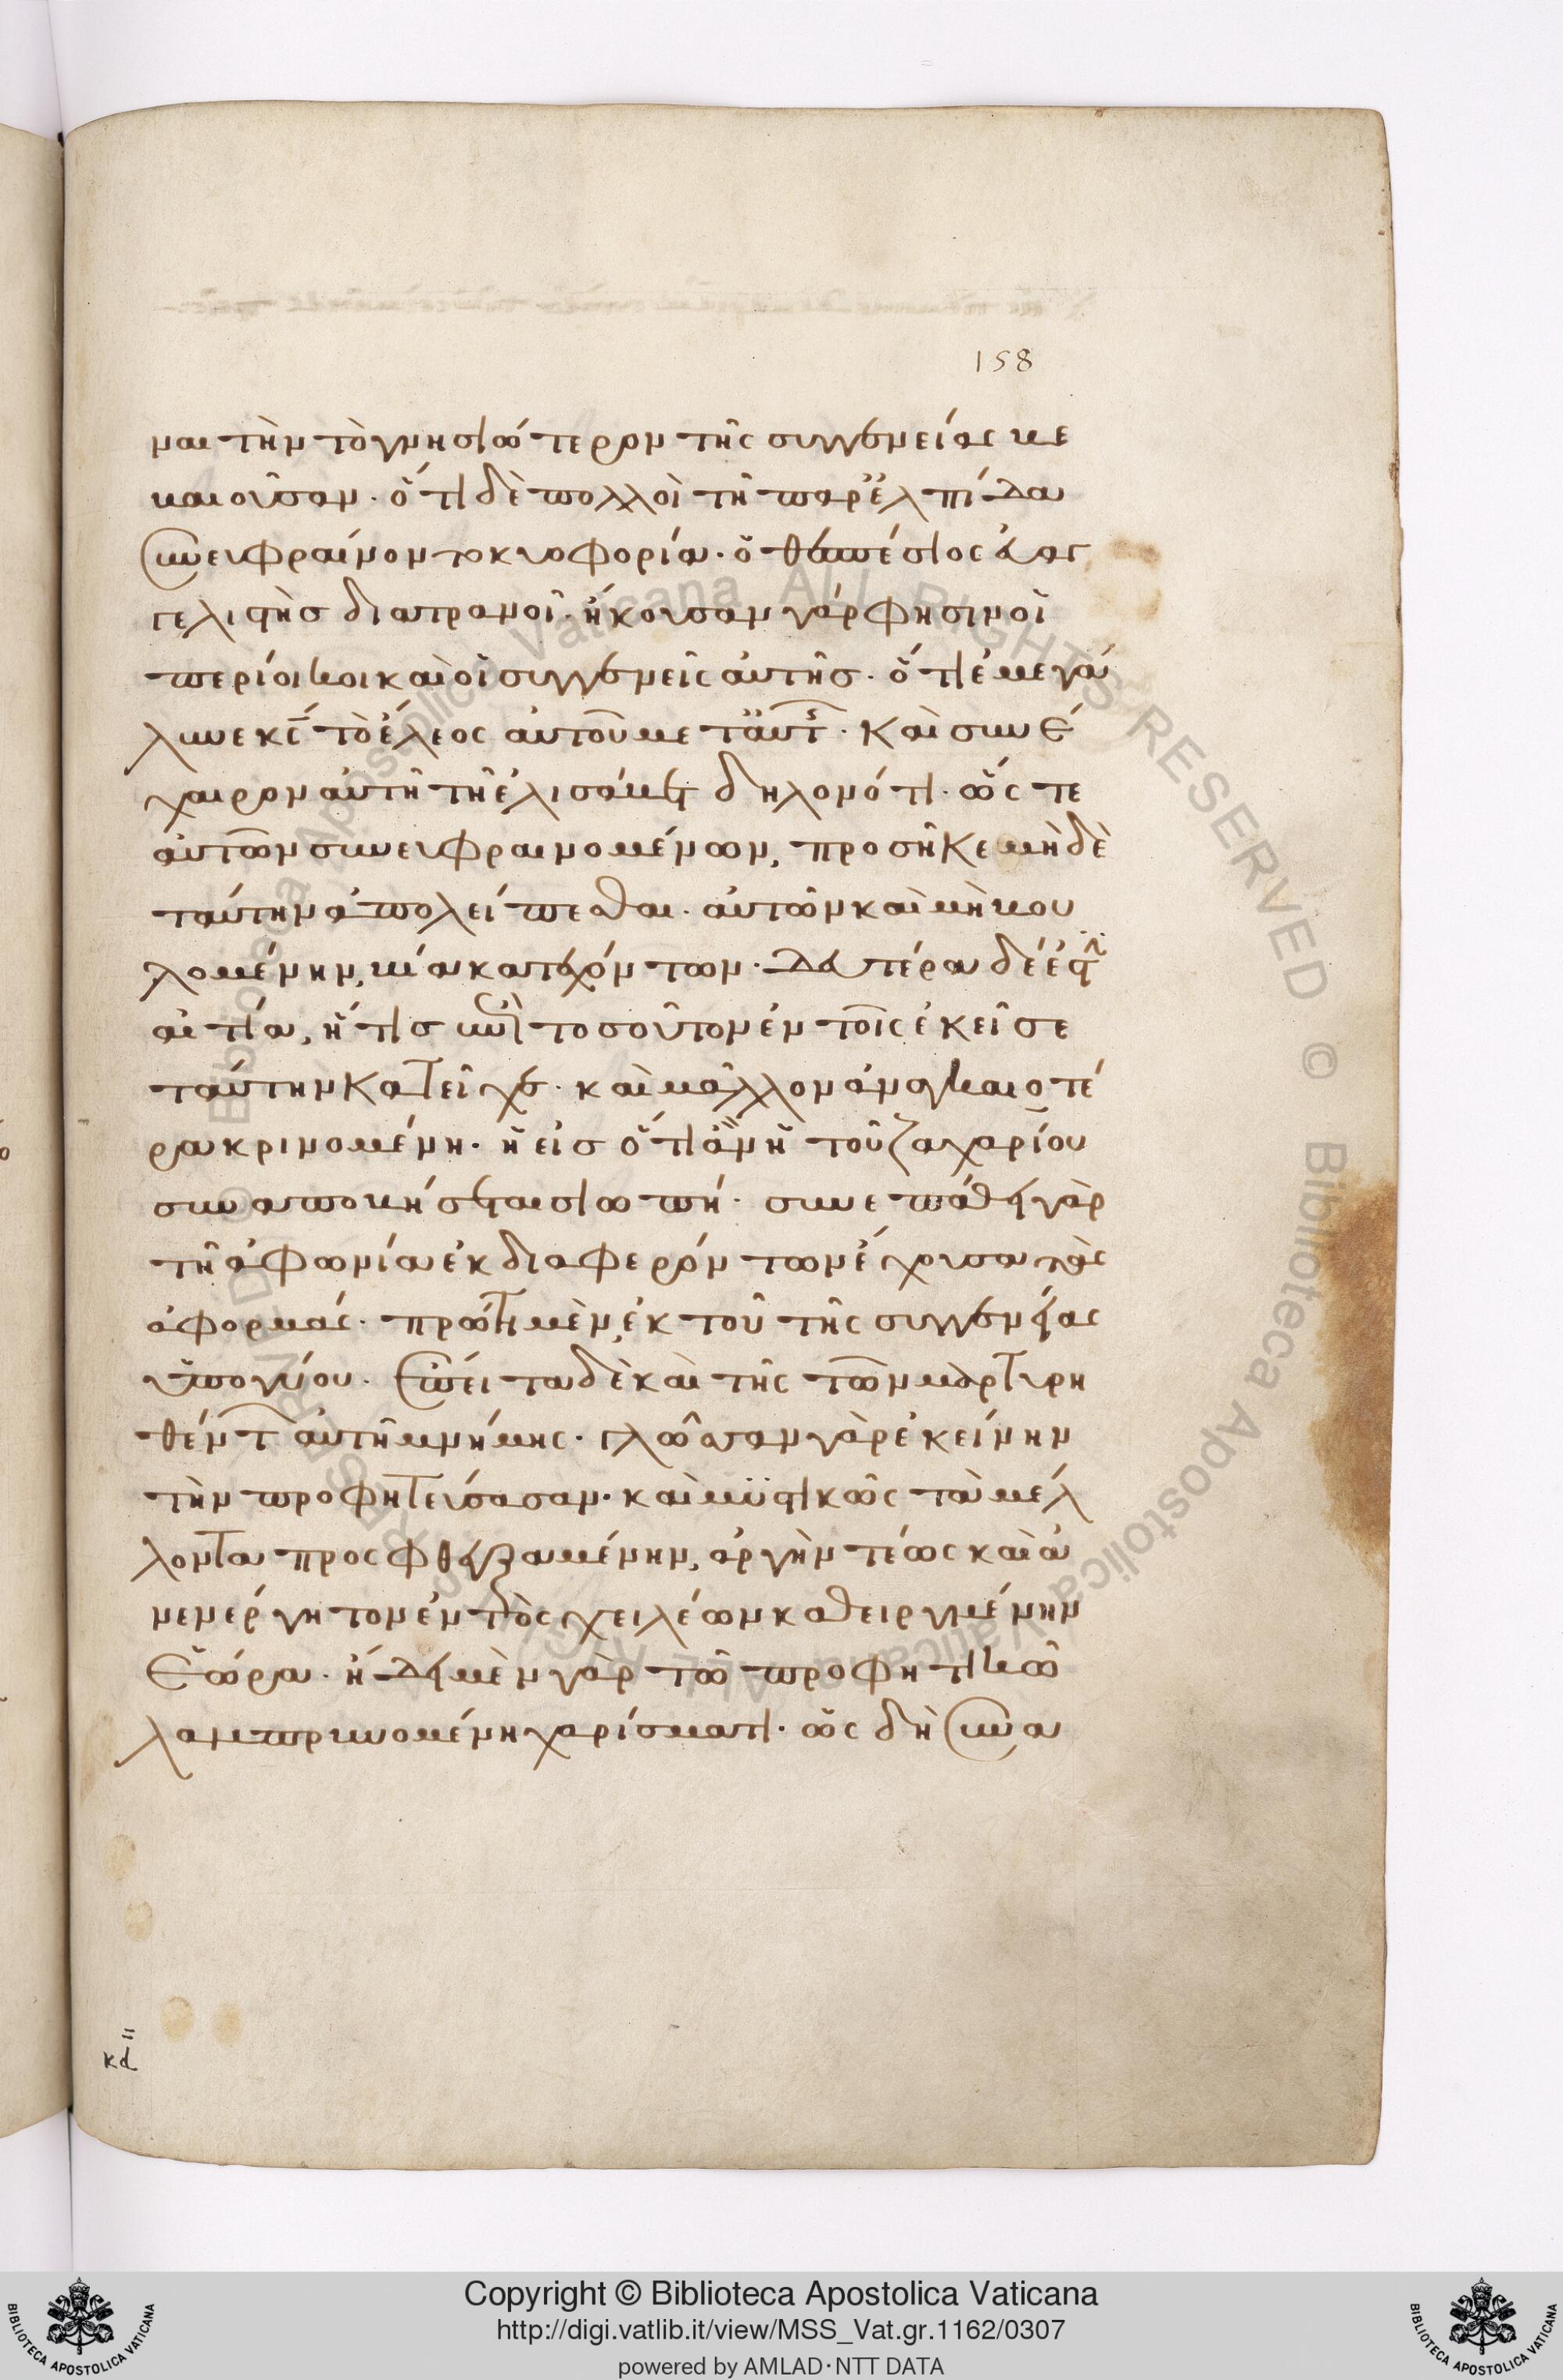 158
ναι τὴν τὸ γνησιώτερον τῆς συγγενείας βε
βαιοῦσαν. ὅτι δὲ πολλοὶ τῆ παρ' ἐλπίδα
ἐπευφραίνοντο κυοφορία. ὁ θεσπέσιος εὐαγ
γελιστὴς διατρανοῖ. ἤκουσαν γάρ φησιν οἱ
περίοικοι καὶ οἱ συγγενεῖς αὐτῆς. ὅτι ἐμεγά
λυνε κς τὸ ἔλεος αὐτοῦ μετ' αὐτῆς. καὶ συνέ
χαιρον αὐτῆ τῆ ἐλισάβετ δηλονότι. ὥς τε
αὐτῶν συνευφραινομένων, προσῆκε μὴ δὲ
ταύτην ἀπολείπεσθαι. αὐτῶν καὶ μὴ βου
λομένην, βία κατεχόντων. δευτέρα δέ ἐστιν
αἰτία, ἥτις ἐπὶ τοσοῦτον ἐν τοῖς ἐκεῖσε
ταύτην κατεῖχε. καὶ μᾶλλον ἀναγκαιοτέ
ρα κρινομένη. ἡ εἰσότι ἂν ἡ τοῦ ζαχαρίου
συναποβήσεται σιωπή. συνεπάθει γὰρ
τῆ ἀφωνία ἐκ διαφερόντων ἔχουσα τὰς
ἀφορμάς. πρῶτα μὲν, ἐκ τοῦ τῆς συγγενείας
ὑπογύου. ἔπειτα δὲ καὶ τῆς τῶν μαρτυρη
θέντων αὐτῆ μνήμης. γλῶσσαν γὰρ ἐκείνην
τὴν προφητεύσασαν. καὶ μυστικῶς τὰ μέλ
λοντα προσφθεγξαμένην, ἀργὴν τέως καὶ ἀ
νενέργητον ἐντὸς χειλέων καθειργμένην
ἑώρα. ἤδει μὲν γὰρ τῶ προφητικῶ
λαμπρυνομένη χαρίσματι. ὡς δὴ ἐπα
κδ
Copyright © Biblioteca Apostolica Vaticana
http://digi.vatlib.it/view/MSS_Vat.gr.1162/0307
powered by AMLAD·NTT DATA